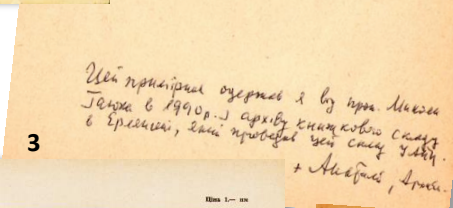 Цей примірник одержав я від прот. Миколи
в 1990 р. з архіву книжкового складу
в Ерлянґені, який провадив цей склад УАПЦ.
+ Анатолій,
3
Ціна 1.— нм